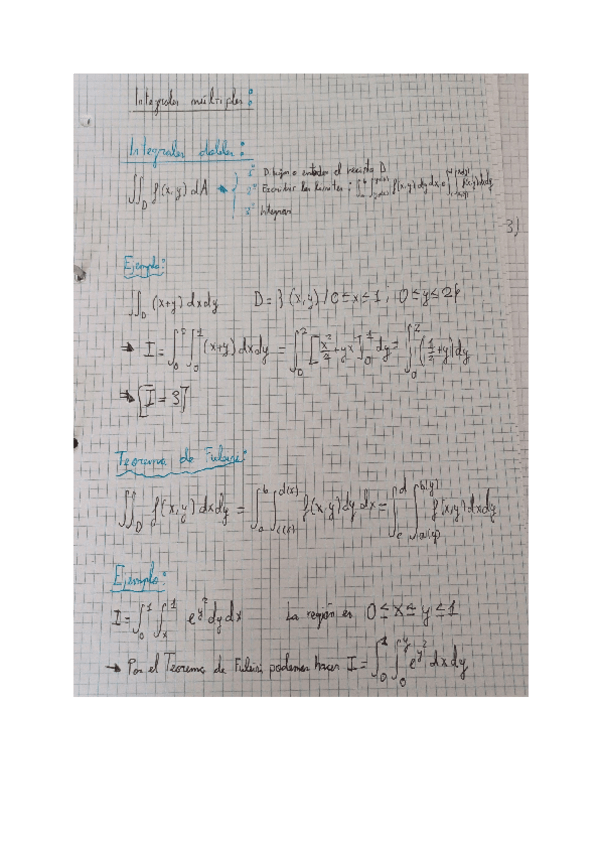 Integrales múltiples:
Integrales dobles:
1º Dibujar o entender el recinto D
∬_D f(x,y) dA → 2º Escribir los límites: ∫∫ f(x,y) dy dx, o ∫∫ f(x,y) dx dy
3º Integrar
3)
Ejemplo:
∬_D (x+y) dxdy D = {(x,y) / 0 ≤ x ≤ 1, 0 ≤ y ≤ 2}
→ I = ∫_0^2 ∫_0^1 (x+y) dxdy = ∫_0^2 [x²/2 + yx]_0^1 dy = ∫_0^2 (1/2 + y) dy
⇒ [I = 3]
Teorema de Fubini:
∬_D f(x,y) dxdy = ∫_a^b ∫_{c(x)}^{d(x)} f(x,y) dy dx = ∫_c^d ∫_{a(y)}^{b(y)} f(x,y) dxdy
Ejemplo:
I = ∫_0^1 ∫_x^1 e^{y²} dy dx La región es 0 ≤ x ≤ y ≤ 1
→ Por el Teorema de Fubini podemos hacer I = ∫_0^1 ∫_0^y e^{y²} dxdy